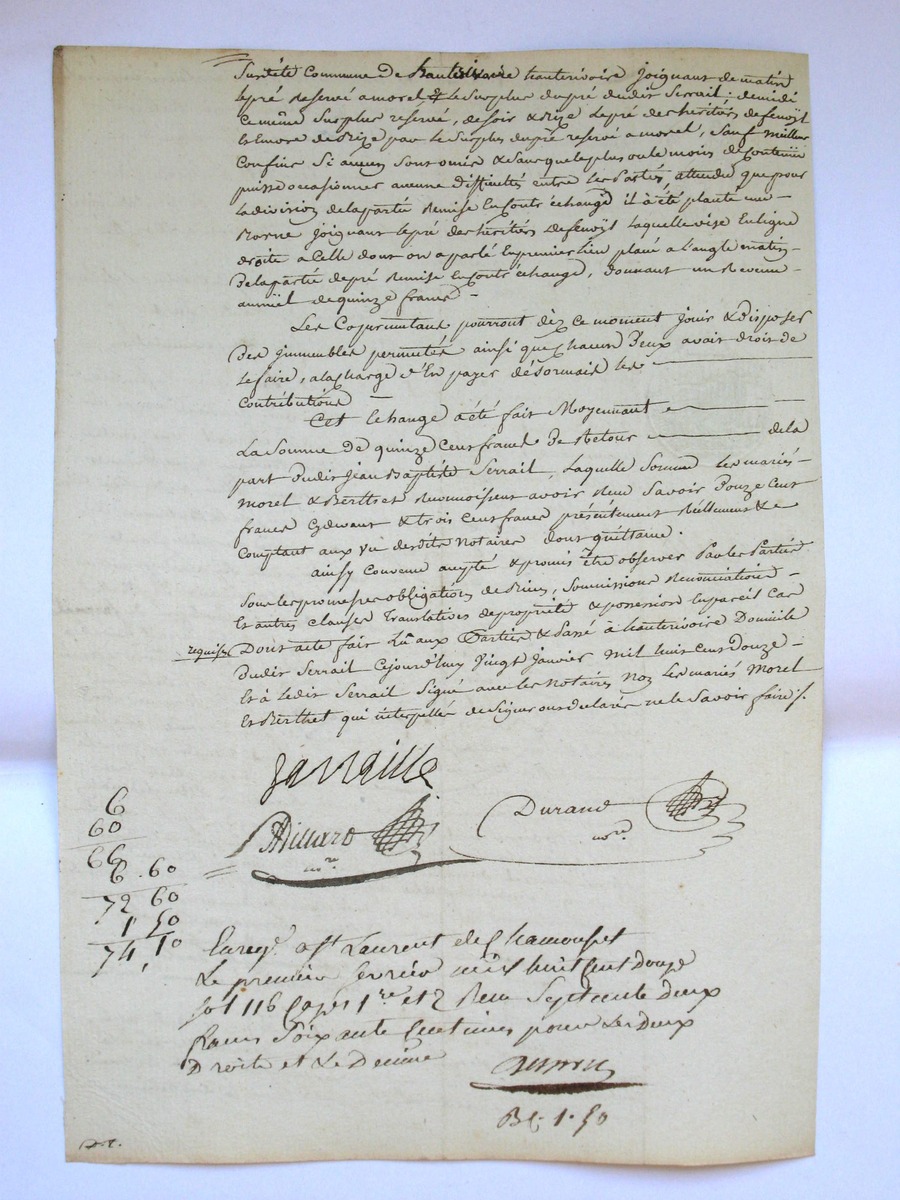 Susdite Commune de hauterivoire hauterivoire joignant de matin
le pré reservé a morel & le surplus du pré dudit Serrail ; de midi
ce même Surplus reservé, de soir & bize le pré des heritiers defenoÿl
et Encore de Bize par le Surplus du pré reservé a morel, Sauf meilleurs
Confins Si aucun Sont omis & Sans que le plus ou le moins de Contenüe
puisse occasionner aucune difficultés entre les Parties, attendu que pour
la division de la partie Remise En Contr'échange il à été planté une
Borne joignant le pré des heritiers defenoÿl laquelle vise En ligne
droite a Celle dont on a parlé En premier lieu placé a l'angle matin
De la partie de pré Remise En Contr'échange, donnant un Revenu
annuël de quinze francs
Les Copermutans pourront dèz ce moment jouir & Disposer
Des jmmeubles permutés ainsi que chacun D'eux avait droit de
le faire, a la charge d'En payer désormais les
Contributions
Cet Echange a été fait Moyennant
La Somme De quinze Cent francs De Retour de la
part Dudit Jean Baptiste Serrail, Laquelle Somme les mariés
Morel & Berthet Reconnoissent avoir Reçu Savoir Douze Cent
francs Cydevant & trois Cent francs présentement Réellement &
Comptant aux vu desdits Notaires dont quittance.
ainsy Convenu accepté & promis être observer Par les Parties
Sous les promesses obligations de Biens, Soumissions Renonciations
et autres clauses Translatives de propriété & possession En pareil Cas
requises Dont acte fait Lû aux Parties & Passé à hauterivoire Domicile
Dudit Serrail Cejourd'huy Vingt Janvier Mil huit Cent Douze
Et à ledit Serrail Signé avec les Notaires Non les mariés Morel
Et Berthet qui interpellés de Signer ont declarés ne le Savoir faire /.
Sarraille
Durand
nore
nre
6
60
66
6 . 60
72 60
1 50
74 , 10
Enregé a St Laurent de Chamousset
Le premier fevrier mil huit Cent douze
fol 116 Cases 1re et 2 Recu Septante deux
francs Soixante Centimes pour les deux
Droits et Le Decime
Bl. 1. 50